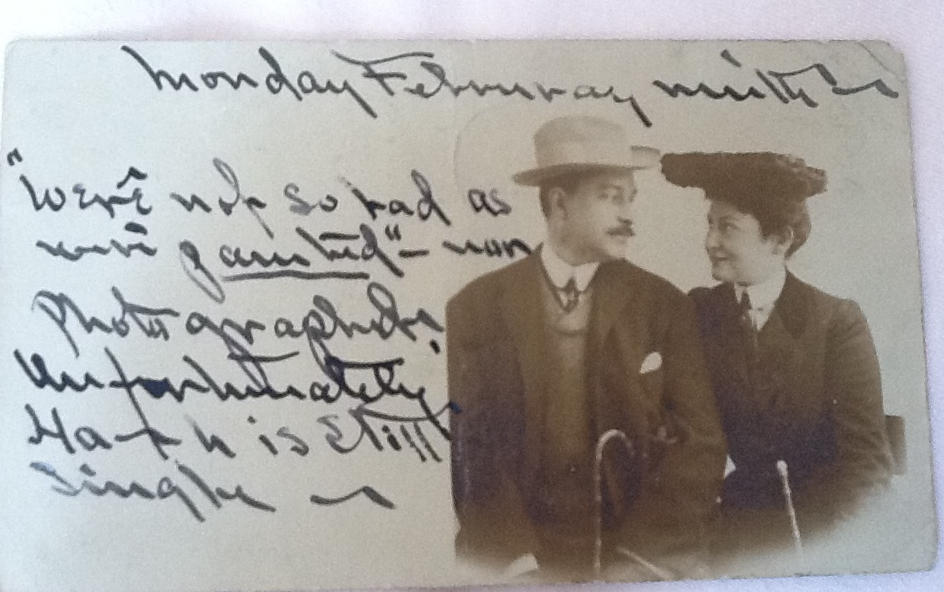 Monday February ninth
"We're not so bad as
we're painted" – nor
Photographed!
Unfortunately
is still
single –